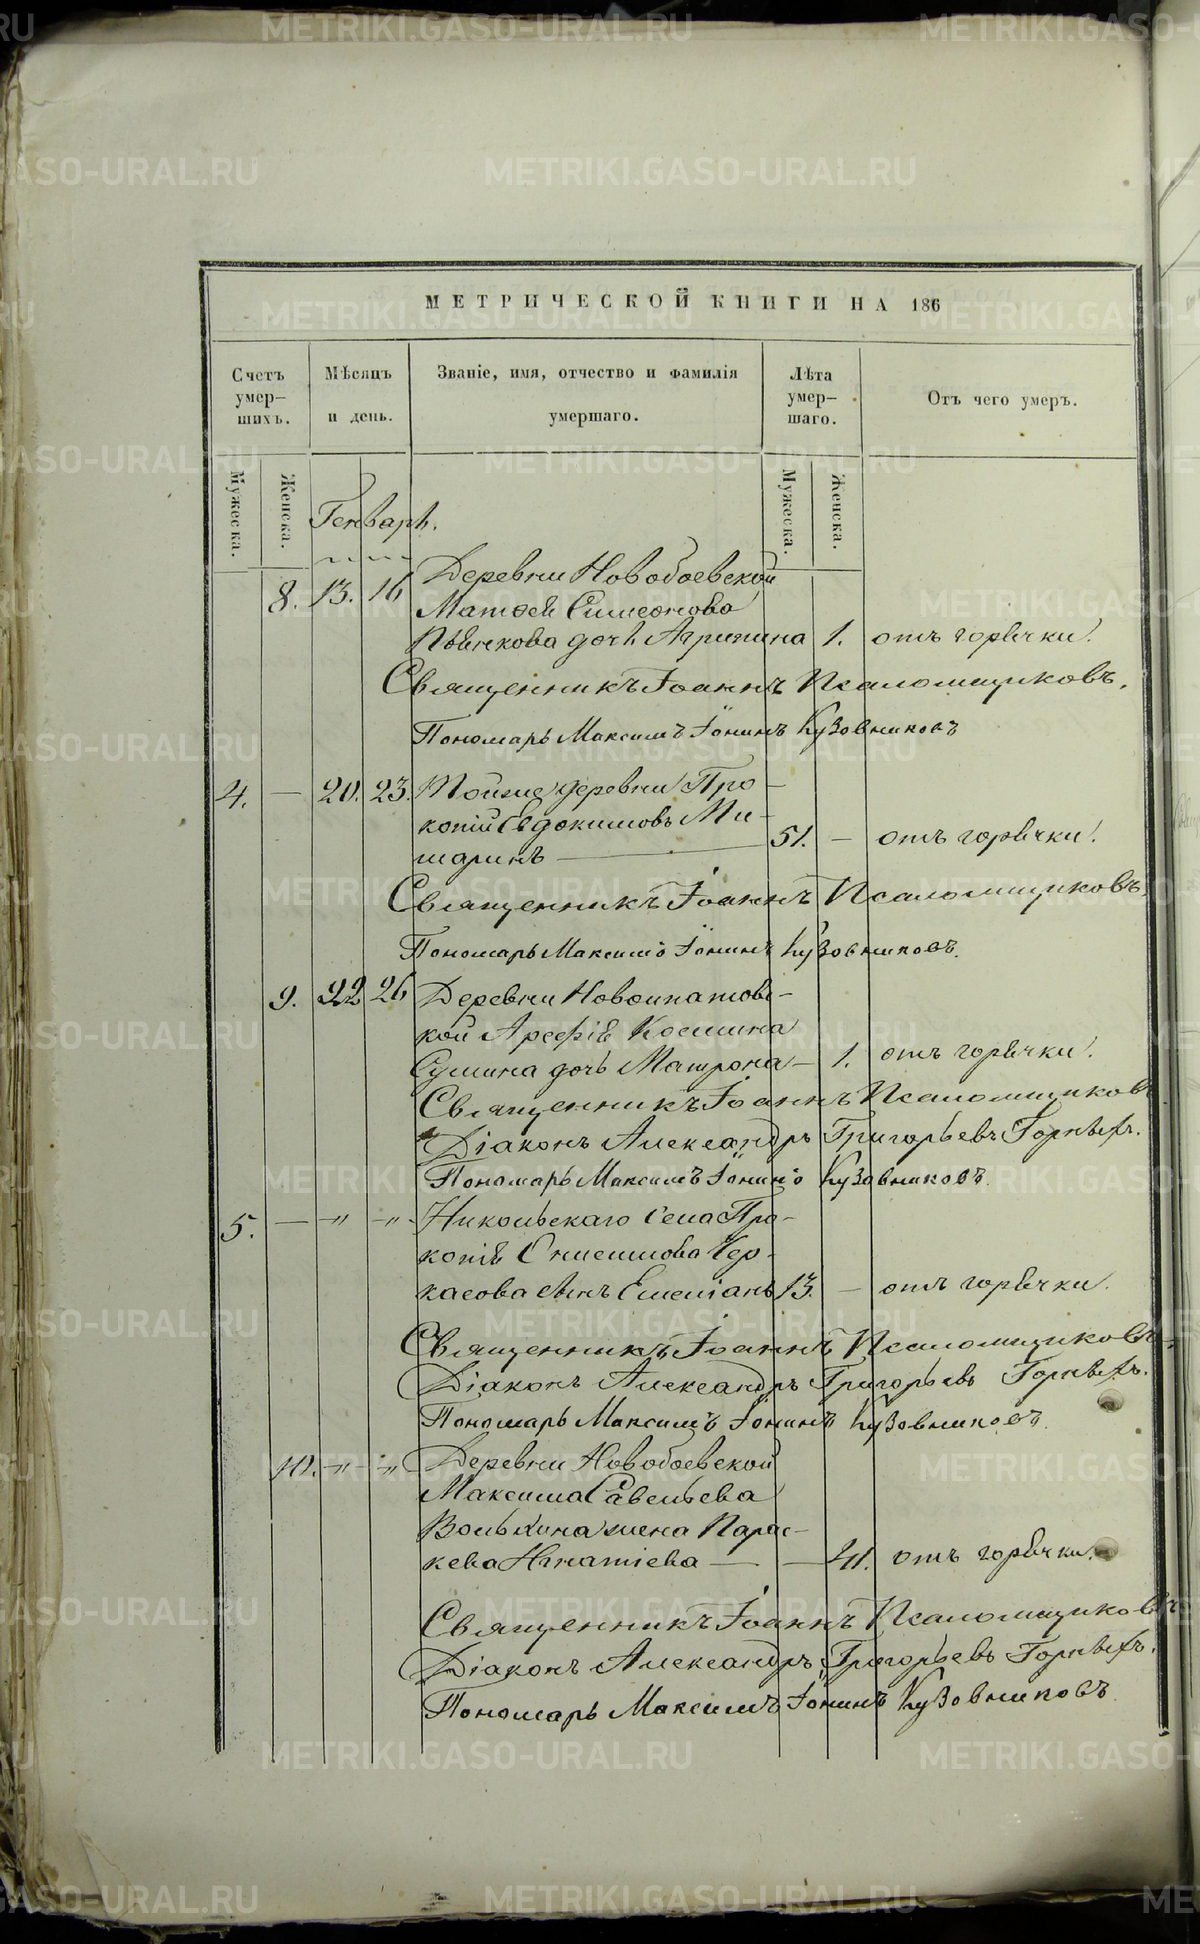 МЕТРИЧЕСКОЙ КНИГИ НА 186
Счетъ умер-шихъ.
Мѣсяцъ и день.
Званіе, имя, отчество и фамилія умершаго.
Лѣта умер-шаго.
Отъ чего умеръ.
Мужеска.
Женска.
Мужеска.
Женска.
Генварь.
8. 13. 16 Деревни Новобоевской
Матѳея Симеонова
дочь Агрипина 1. отъ горячки.
Священникъ Іоаннъ Псаломщиковъ.
Пономарь Максимъ Іонинъ Кузовниковъ
4. — 20. 23. Тойже деревни Про-
копій Евдокимовъ Ми-
шаринъ — 51. — отъ горячки.
Священникъ Іоаннъ Псаломщиковъ
Пономарь Максимъ Іонинъ Кузовниковъ.
9. 22 26 Деревни Новоипатов-
кой Арефія Косьмина
Сумина дочь Матрона — 1. отъ горячки.
Священникъ Іоаннъ Псаломщиковъ
Діаконъ Александръ Григорьевъ Горныхъ.
Пономарь Максимъ Іонинъ Кузовниковъ.
5. — -"- -"- Никольскаго села Про-
копія Чер-
касова сынъ Емеліанъ 13. — отъ горячки.
Священникъ Іоаннъ Псаломщиковъ
Діаконъ Александръ Григорьевъ Горныхъ.
Пономарь Максимъ Іонинъ Кузовниковъ.
10. -"- -"- Деревни Новобоевской
Максима Савельева
Волькина жена Парас-
кева Игнатіева — — 41. отъ горячки.
Священникъ Іоаннъ Псаломщиковъ
Діаконъ Александръ Григорьевъ Горныхъ.
Пономарь Максимъ Іонинъ Кузовниковъ.
METRIKI.GASO-URAL.RU